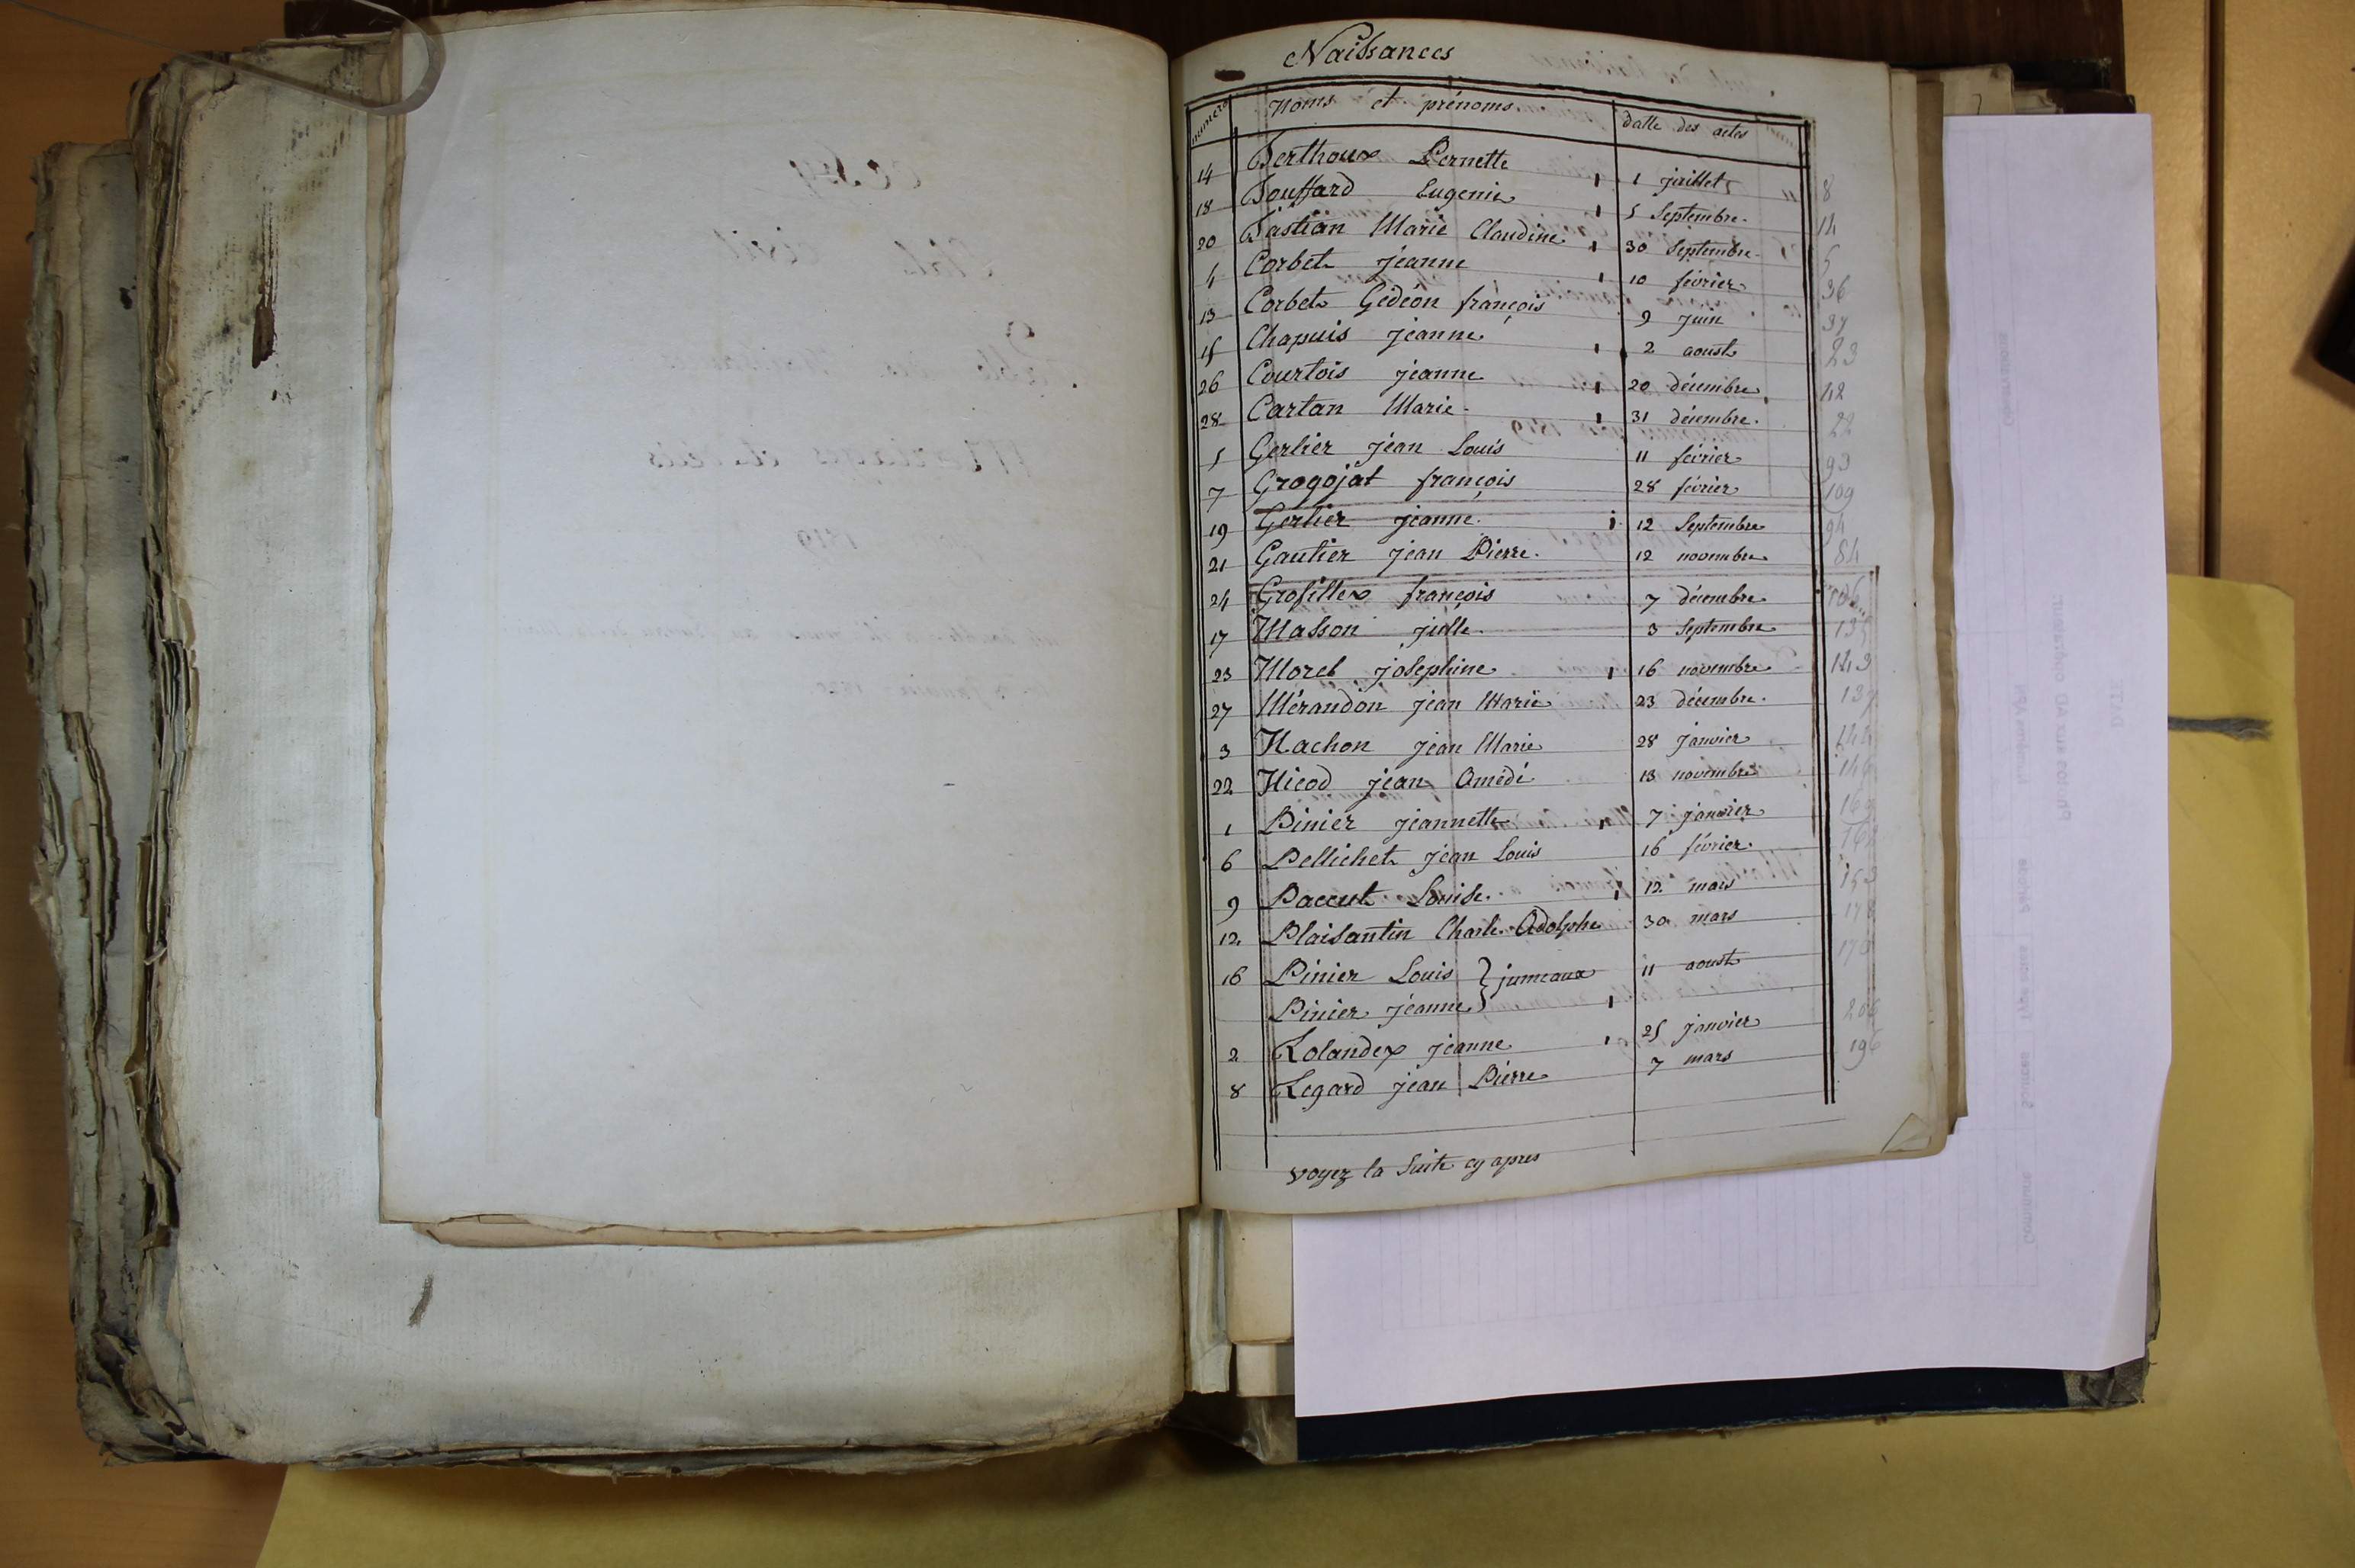 Naissances
numero Noms et prénoms datte des actes
14 Berthoux Pernette 1 juillet 8
18 Bouffard Eugenie 5 Septembre 14
20 Bastian Marie Claudine 30 Septembre 5
4 Corbet jeanne 10 février 36
13 Corbet Gédéon françois 9 juin 37
15 Chapuis jeanne 2 aoust 23
26 Courtois jeanne 20 décembre 42
28 Cartan Marie 31 décembre 22
5 Gerlier jean Louis 11 février 93
7 Grogojat françois 28 février 109
19 Gerlier jeanne 12 Septembre 94
21 Gautier jean Pierre 12 novembre 84
24 Grosillex françois 7 décembre 106
17 Masson julle 3 Septembre
23 Morel josephine 16 novembre 143
27 Mérandon jean Marie 23 décembre 137
3 Nachon jean Marie 28 janvier
22 Nicod jean Amédé 13 novembre
1 Pinier jeannette 7 janvier 169
6 Pellichet jean Louis 16 février
9 Paccut Louise 12 mars
12 Plaisantin Charle Adolphe 30 mars
16 Pinier Louis } jumeaux 11 aoust
Pinier jeanne
2 Rolandex jeanne 25 janvier
8 Regard jean Pierre 7 mars 196
voyez la Suite cy apres